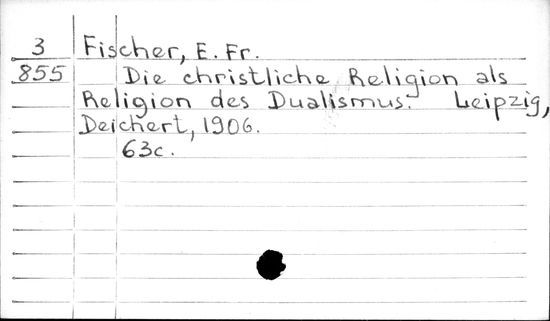 3 Fischer, E. Fr.
855 Die christliche Religion als
Religion des Dualismus. Leipzig,
Deichert, 1906.
63c.